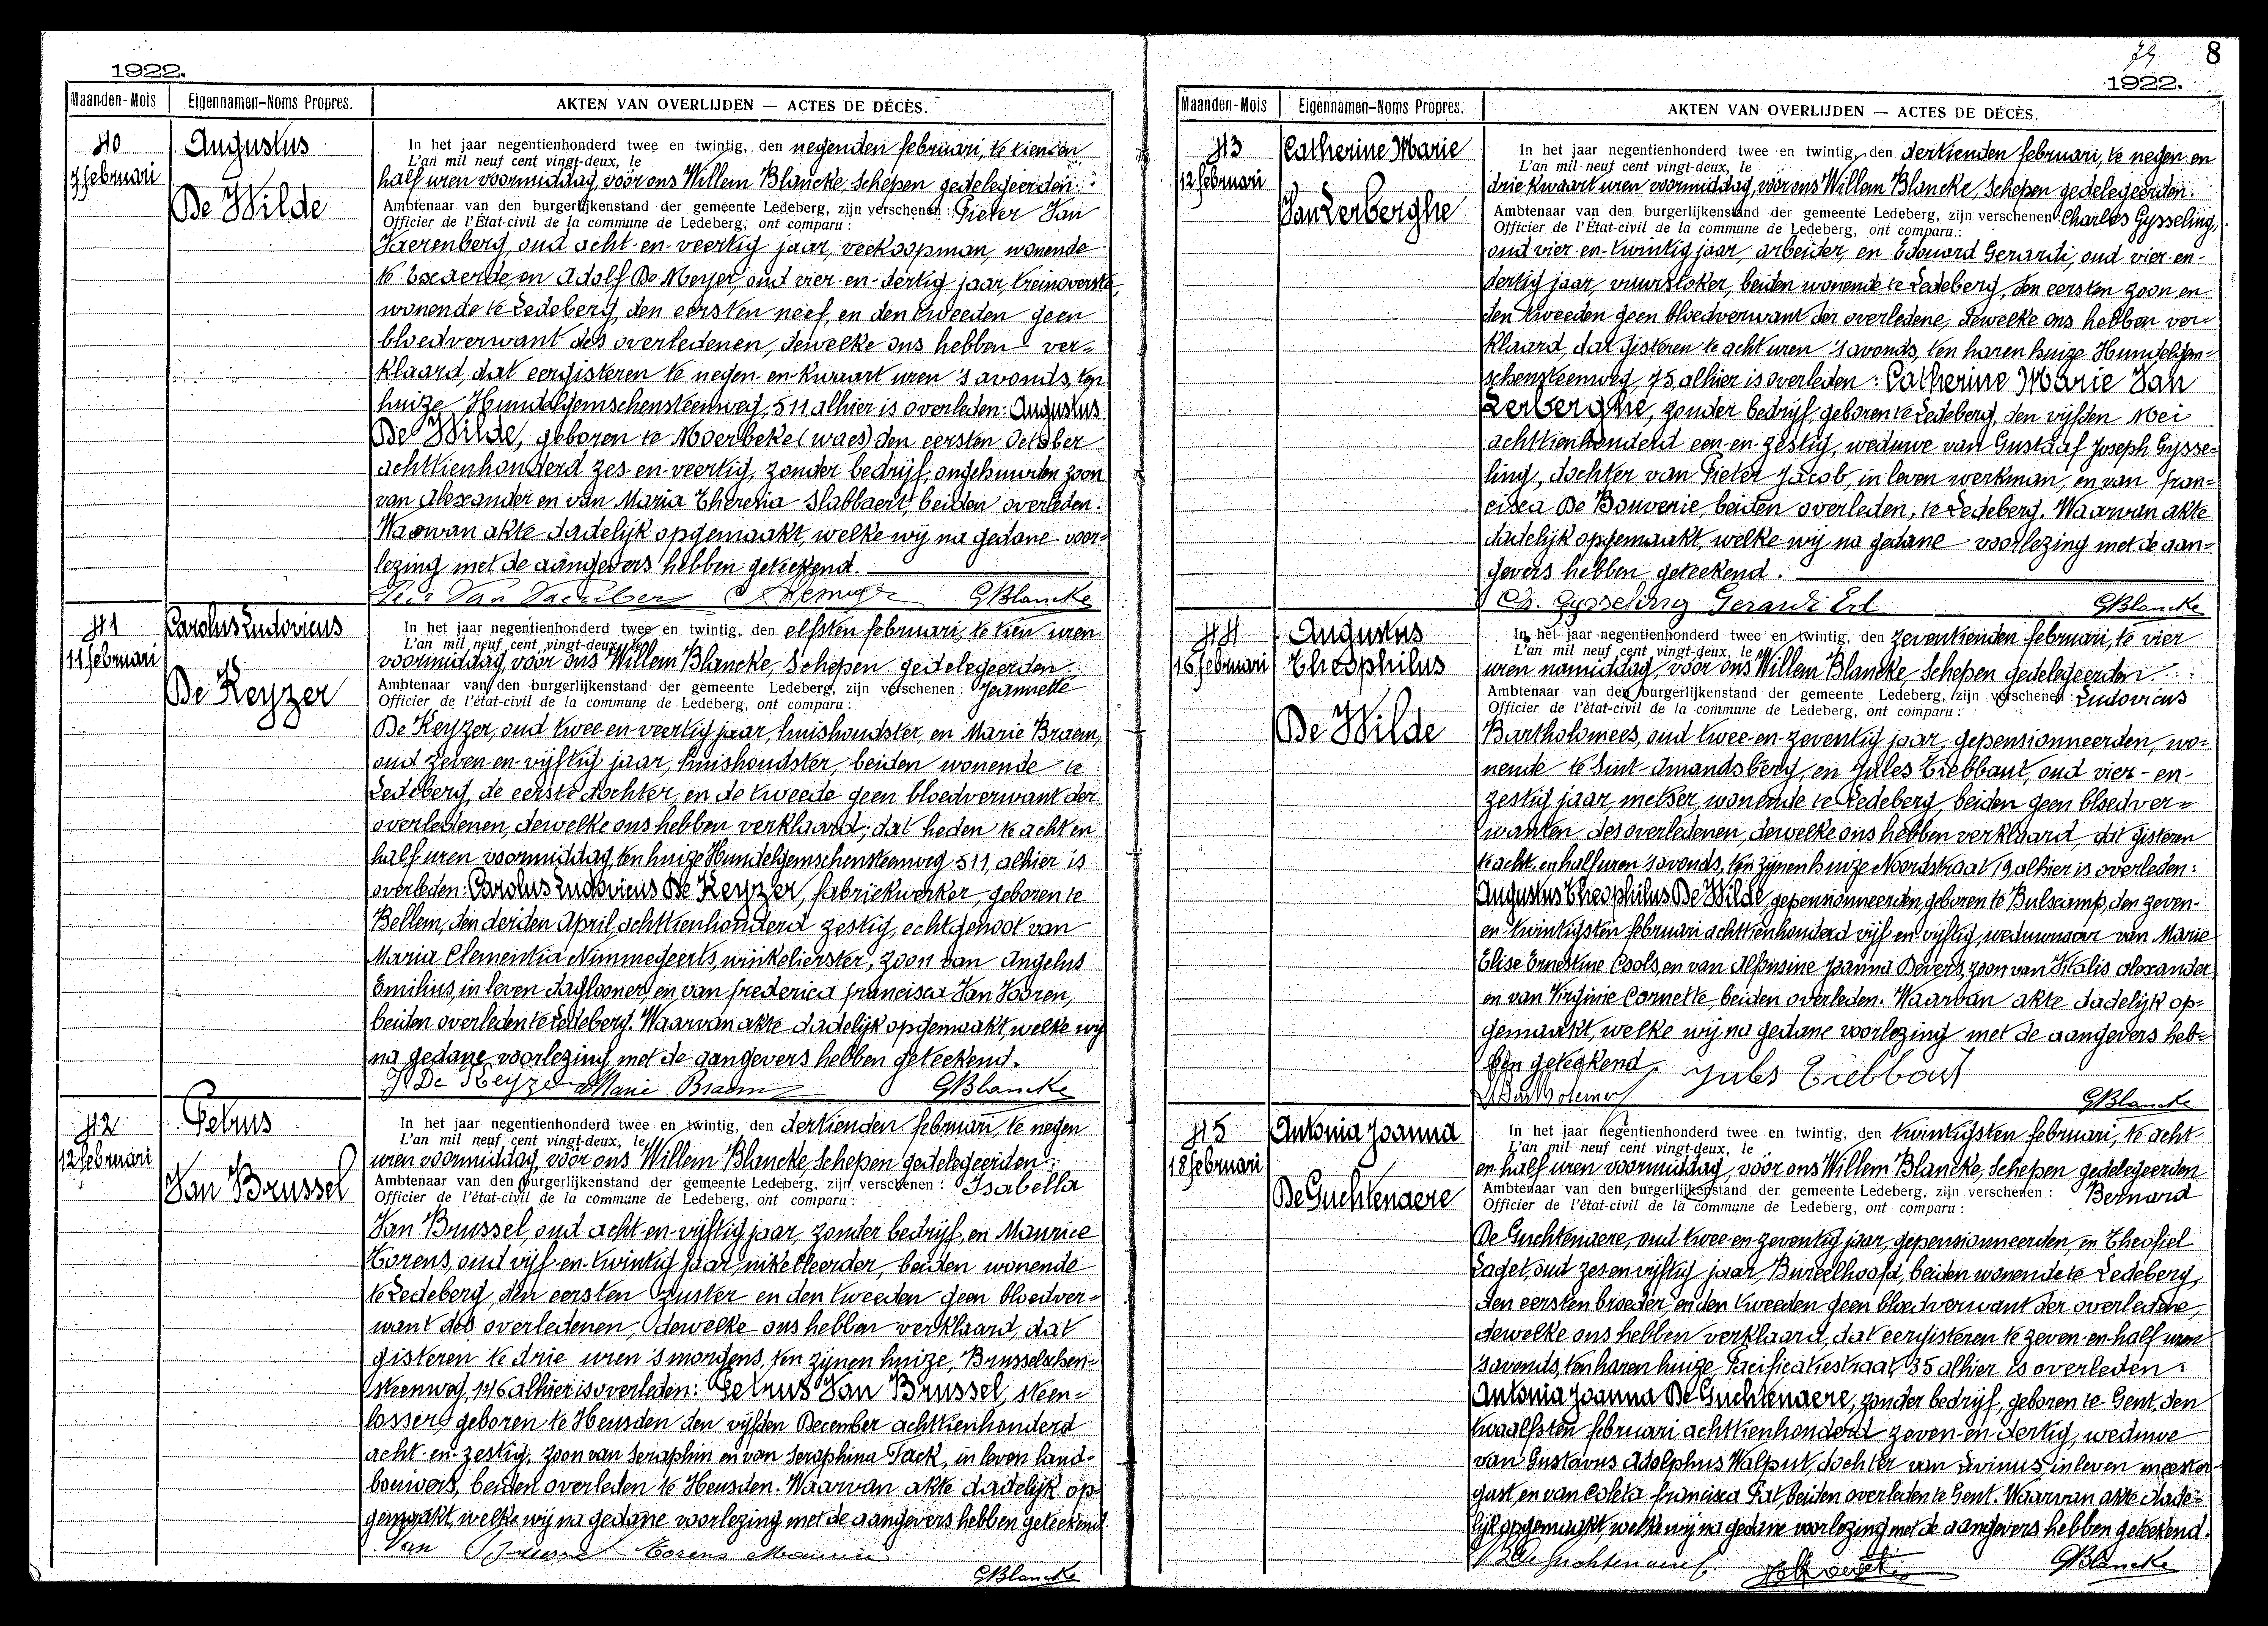 1922.
Maanden-Mois
Eigennamen-Noms Propres.
AKTEN VAN OVERLIJDEN — ACTES DE DÉCÈS.
40
7 februari
Augustus
De Wilde
In het jaar negentienhonderd twee en twintig, den negenden februari, te tien en
L'an mil neuf cent vingt-deux, le
half uren voormiddag, vóór ons Willem Blancke, Schepen gedelegeerden
Ambtenaar van den burgerlijkenstand der gemeente Ledeberg, zijn verschenen : Pieter Van
Officier de l'État-civil de la commune de Ledeberg, ont comparu :
Vaerenberg, oud acht-en-veertig jaar, veekoopman, wonende
te Exaerde, en Adolf De Meyer oud vier-en-dertig jaar, treinoverste,
wonende te Ledeberg, den eersten neef, en den tweeden geen
bloedverwant des overledenen, dewelke ons hebben ver=
klaard, dat eergisteren te negen-en-kwaart uren 's avonds, ten
huize Hundelgemschensteenweg, 511 alhier is overleden: Augustus
De Wilde, geboren te Moerbeke (waes) den eersten October
achttienhonderd zes-en-veertig, zonder bedrijf, ongehuwden zoon
van Alexander en van Maria Theresia Slabbaert, beiden overleden.
Waarvan akte dadelijk opgemaakt, welke wij na gedane voor=
lezing met de aangevers hebben geteekend.
GBlancke
41
11 februari
Carolus Ludovicus
De Keyzer
In het jaar negentienhonderd twee en twintig, den elfsten februari, te tien uren
L'an mil neuf cent vingt-deux, le
voormiddag, vóór ons Willem Blancke, Schepen gedelegeerden
Ambtenaar van den burgerlijkenstand der gemeente Ledeberg, zijn verschenen : Jeannette
Officier de l'état-civil de la commune de Ledeberg, ont comparu :
De Keyzer, oud twee-en-veertig jaar, huishoudster, en Marie Braem,
oud zeven-en-vijftig jaar, huishoudster, beiden wonende te
Ledeberg, de eerste dochter, en de tweede geen bloedverwant der
overledenen, dewelke ons hebben verklaard, dat heden te acht en
half uren voormiddag, ten huize Hundelgemschensteenweg 511, alhier is
overleden: Carolus Ludovicus De Keyzer, fabriekwerker, geboren te
Bellem, den derden April, achttienhonderd zestig, echtgenoot van
Maria Clementia Nimmegeerts, winkelierster, zoon van Angelus
Emilius, in leven daglooner, en van Frederica Francisca Van Vooren,
beiden overleden te Ledeberg. Waarvan akte dadelijk opgemaakt, welke wij
na gedane voorlezing met de aangevers hebben geteekend.
J De Keyzer Marie Braem GBlancke
42
12 februari
Petrus
Van Brussel
In het jaar negentienhonderd twee en twintig, den dertienden februari, te negen
L'an mil neuf cent vingt-deux, le
uren voormiddag, vóór ons Willem Blancke, Schepen gedelegeerden
Ambtenaar van den burgerlijkenstand der gemeente Ledeberg, zijn verschenen : Isabella
Officier de l'état-civil de la commune de Ledeberg, ont comparu :
Van Brussel, oud acht-en-vijftig jaar, zonder bedrijf, en Maurice
Torens, oud vijf-en-twintig jaar, nikeleerder, beiden wonende
te Ledeberg, den eersten zuster en den tweeden geen bloedver=
want des overledenen, dewelke ons hebben verklaard, dat
gisteren te drie uren 's morgens, ten zijnen huize, Brusselschen=
steenweg, 146 alhier is overleden: Petrus Van Brussel, steen=
losser, geboren te Heusden den vijfden December achttienhonderd
acht-en-zestig, zoon van Seraphin en van Seraphina Tack, in leven land=
bouwers, beiden overleden te Heusden. Waarvan akte dadelijk op=
gemaakt, welke wij na gedane voorlezing met de aangevers hebben geteekend.
Van Torens Maurice
GBlancke
8
1922.
Maanden-Mois
Eigennamen-Noms Propres.
AKTEN VAN OVERLIJDEN — ACTES DE DÉCÈS.
43
12 februari
Catherine Marie
Van Lerberghe
In het jaar negentienhonderd twee en twintig, den dertienden februari, te negen en
L'an mil neuf cent vingt-deux, le
driekwaart uren voormiddag, vóór ons Willem Blancke, Schepen gedelegeerden
Ambtenaar van den burgerlijkenstand der gemeente Ledeberg, zijn verschenen : Charles Gysseling,
Officier de l'État-civil de la commune de Ledeberg, ont comparu :
oud vier-en-twintig jaar, arbeider, en Edouard Gerardi, oud vier-en-
dertig jaar, vuurstoker, beiden wonende te Ledeberg, den eersten zoon en
den tweeden geen bloedverwant der overledene, dewelke ons hebben ver=
klaard, dat gisteren te acht uren 's avonds, ten haren huize Hundelgem=
schensteenweg, 75, alhier is overleden : Catherine Marie Van
Lerberghe, zonder bedrijf, geboren te Ledeberg, den vijfden Mei
achttienhonderd een-en-zestig, weduwe van Gustaaf Joseph Gysse=
ling, dochter van Pieter Jacob, in leven werkman, en van Fran=
cisca De Bouverie, beiden overleden, te Ledeberg. Waarvan akte
dadelijk opgemaakt, welke wij na gedane voorlezing met de aan=
gevers hebben geteekend.
Ch. Gysseling Gerardi Ed GBlancke
44
16 februari
Augustus
Theophilus
De Wilde
In het jaar negentienhonderd twee en twintig, den zeventienden februari, te vier
L'an mil neuf cent vingt-deux, le
uren namiddag, vóór ons Willem Blancke, Schepen gedelegeerden
Ambtenaar van den burgerlijkenstand der gemeente Ledeberg, zijn verschenen : Ludovicus
Officier de l'état-civil de la commune de Ledeberg, ont comparu :
Bartholomees, oud twee-en-zeventig jaar, gepensionneerden, wo=
nende te Sint-Amandsberg, en Jules Tiebbaut, oud vier-en-
zestig jaar, metser, wonende te Ledeberg, beiden geen bloedver=
wanten des overledenen, dewelke ons hebben verklaard, dat gisteren
te acht en half uren 's avonds, ten zijnen huize Noordstraat 19, alhier is overleden:
Augustus Theophilus De Wilde, gepensionneerden, geboren te Bulscamp, den zeven-
en-twintigsten februari achttienhonderd vijf-en-vijftig, weduwnaar van Marie
Elise Ernestine Cools, en van Alfonsine Joanna Devers, zoon van Vitalis Alexander
en van Virginie Cornette, beiden overleden. Waarvan akte dadelijk op=
gemaakt, welke wij na gedane voorlezing met de aangevers heb=
ben geteekend. Jules Tiebbout
GBlancke
45
18 februari
Antonia Joanna
De Guchtenaere
In het jaar negentienhonderd twee en twintig, den twintigsten februari, te acht-
L'an mil neuf cent vingt-deux, le
en-half uren voormiddag, vóór ons Willem Blancke, Schepen gedelegeerden
Ambtenaar van den burgerlijkenstand der gemeente Ledeberg, zijn verschenen : Bernard
Officier de l'état-civil de la commune de Ledeberg, ont comparu :
De Guchtenaere, oud twee-en-zeventig jaar, gepensionneerden, en Theofiel
oud zes en vijftig jaar, Bureelhoofd, beiden wonende te Ledeberg,
den eersten broeder, en den tweeden geen bloedverwant der overledene,
dewelke ons hebben verklaard, dat eergisteren te zeven-en-half uren
's avonds, ten haren huize Pacificatiestraat, 35 alhier is overleden :
Antonia Joanna De Guchtenaere, zonder bedrijf, geboren te Gent, den
twaalfsten februari achttienhonderd zeven-en-dertig, weduwe
van Gustavus Adolphus Walput, dochter van Livinus, in leven meester=
gast, en van Coleta Francisca Pat, beiden overleden te Gent. Waarvan akte dade=
lijk opgemaakt, welke wij na gedane voorlezing met de aangevers hebben geteekend.
GBlancke